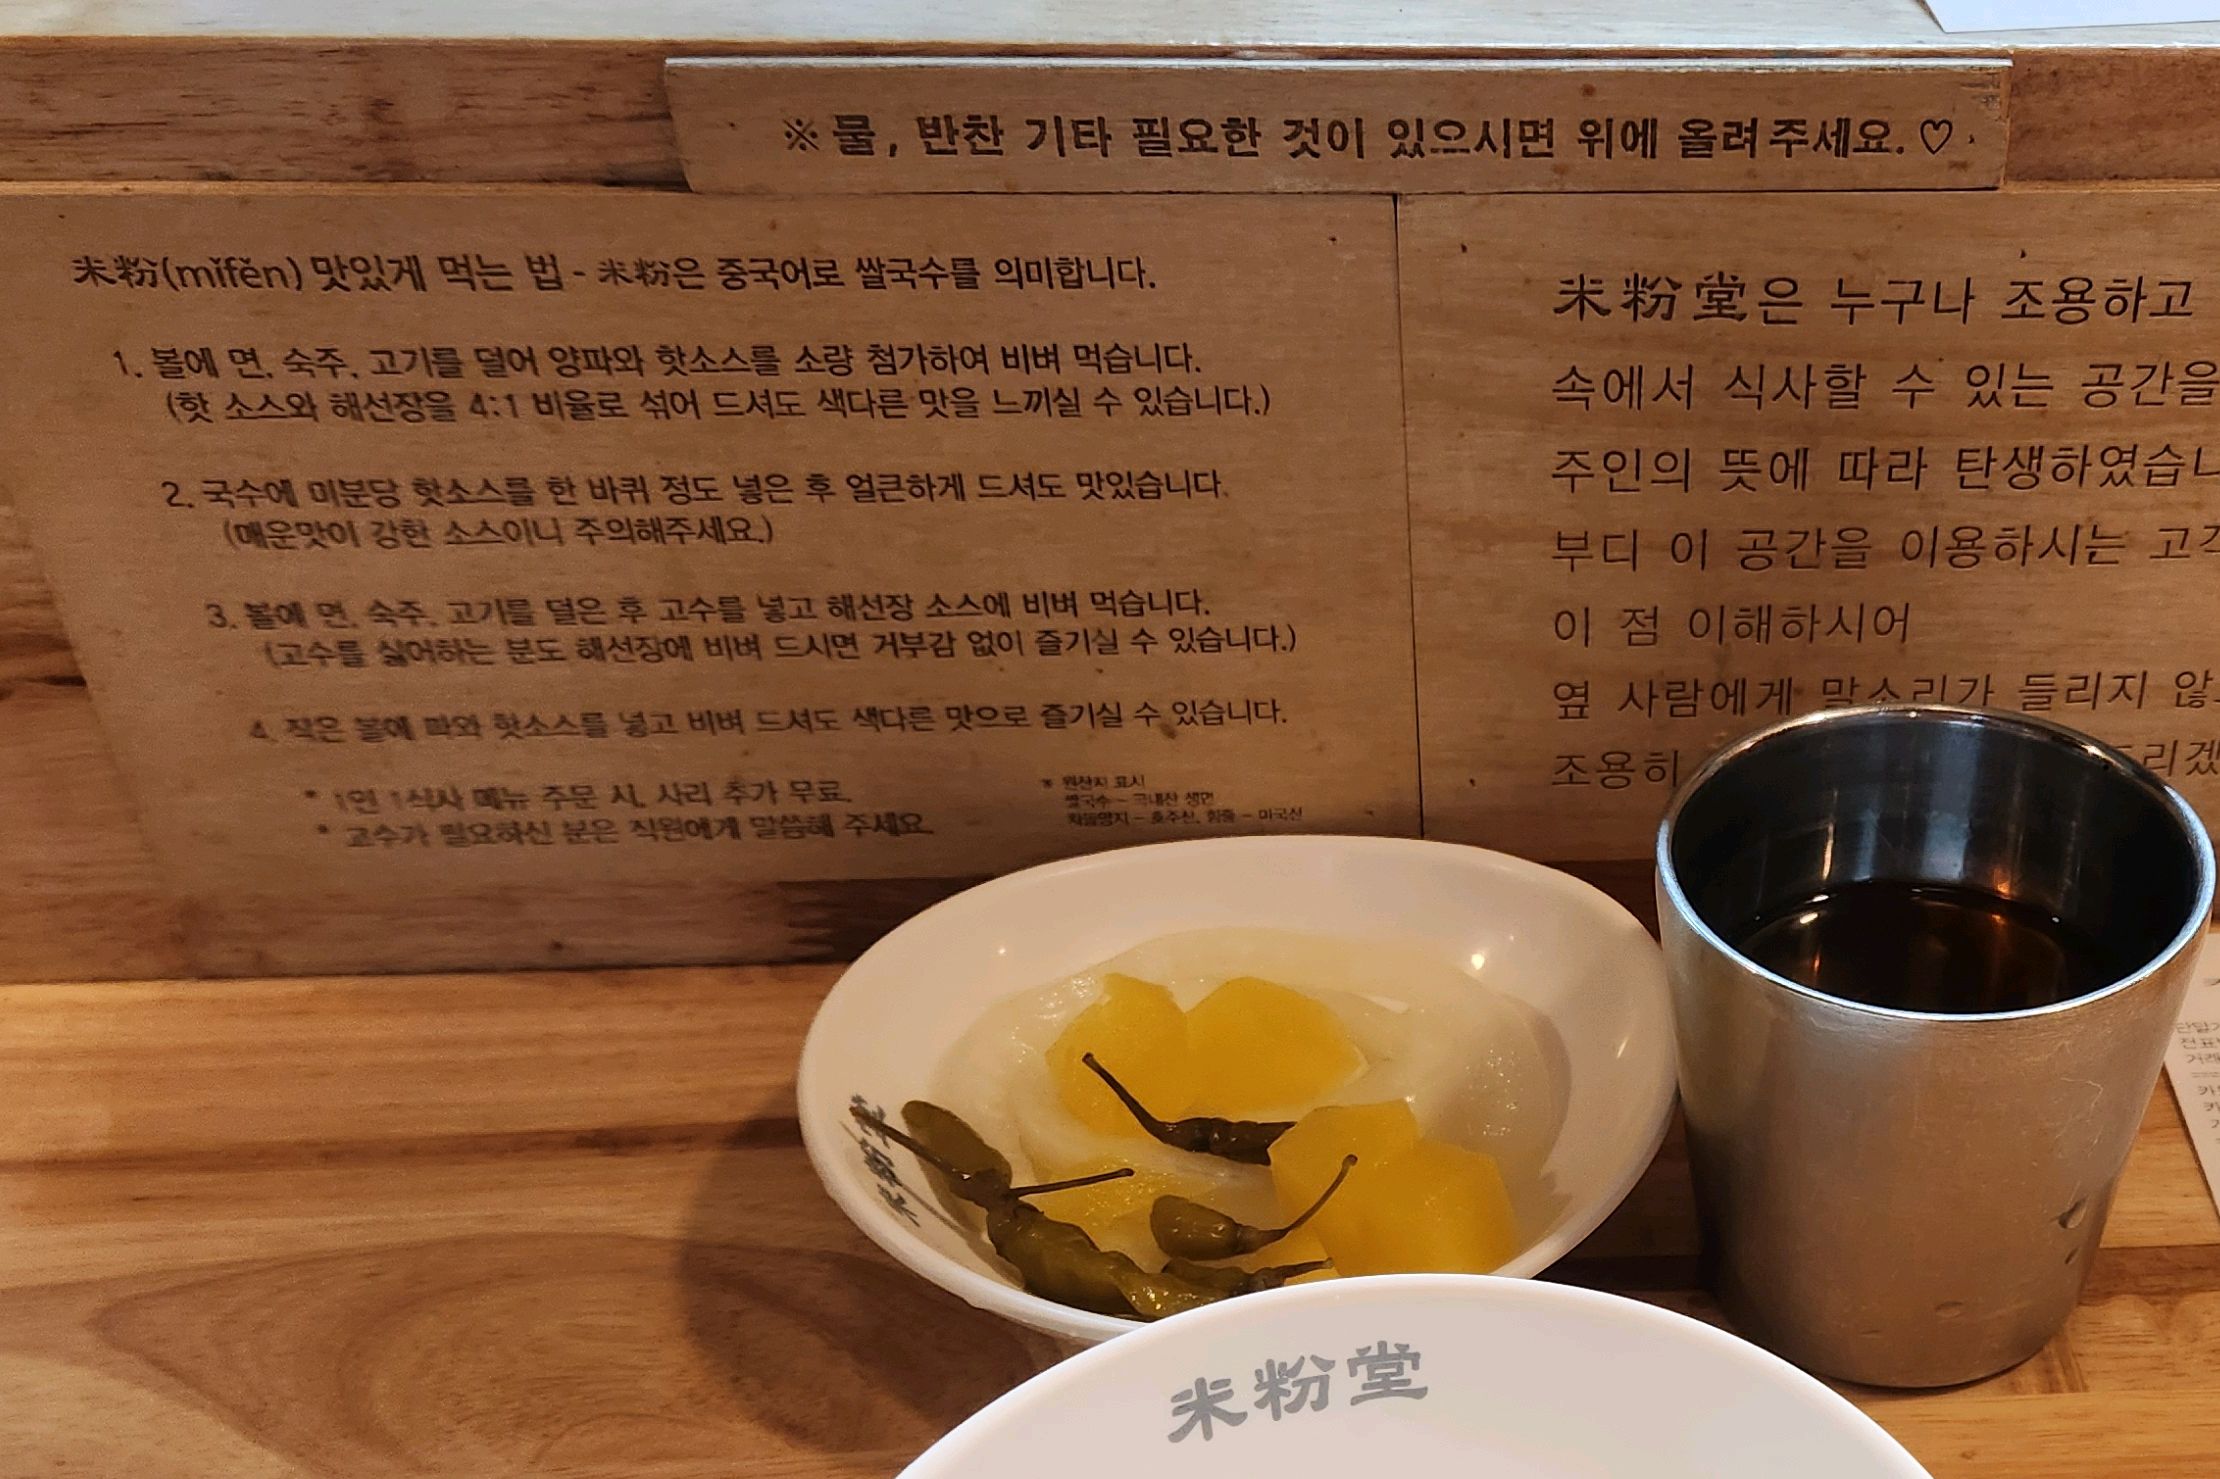 ※ 물, 반찬 기타 필요한 것이 있으시면 위에 올려주세요.♡
米粉(mǐfěn) 맛있게 먹는 법 - 米粉은 중국어로 쌀국수를 의미합니다.
1. 볼에 면, 숙주, 고기를 덜어 양파와 핫소스를 소량 첨가하여 비벼 먹습니다.
(핫 소스와 해선장을 4:1 비율로 섞어 드셔도 색다른 맛을 느끼실 수 있습니다.)
2. 국수에 미분당 핫소스를 한 바퀴 정도 넣은 후 얼큰하게 드셔도 맛있습니다.
(매운맛이 강한 소스이니 주의해주세요.)
3. 볼에 면, 숙주, 고기를 덜은 후 고수를 넣고 해선장 소스에 비벼 먹습니다.
(고수를 싫어하는 분도 해선장에 비벼 드시면 거부감 없이 즐기실 수 있습니다.)
4. 작은 볼에 파와 핫소스를 넣고 비벼 드셔도 색다른 맛으로 즐기실 수 있습니다.
* 1인 1식사 메뉴 주문 시, 사리 추가 무료.
* 고수가 필요하신 분은 직원에게 말씀해 주세요.
* 원산지 표시
쌀국수 - 국내산 생면
차돌양지 - 호주산, 힘줄 - 미국산
米粉堂은 누구나 조용하고
속에서 식사할 수 있는 공간을
주인의 뜻에 따라 탄생하였습니
부디 이 공간을 이용하시는 고객
이 점 이해하시어
옆 사람에게 말소리가 들리지 않
조용히 드리겠
米粉堂
米粉堂